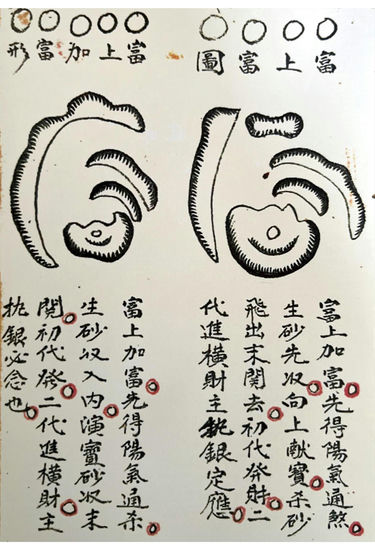 富上富圖
富上加富先得陽氣通煞
生砂先収向上献寳杀砂
飛出末関去初代發財二
代進横財主銀定應
富上加富形
富上加富先得陽氣通杀
生砂収入内演寳砂収末
関初代發二代進横財主
挑銀必念也